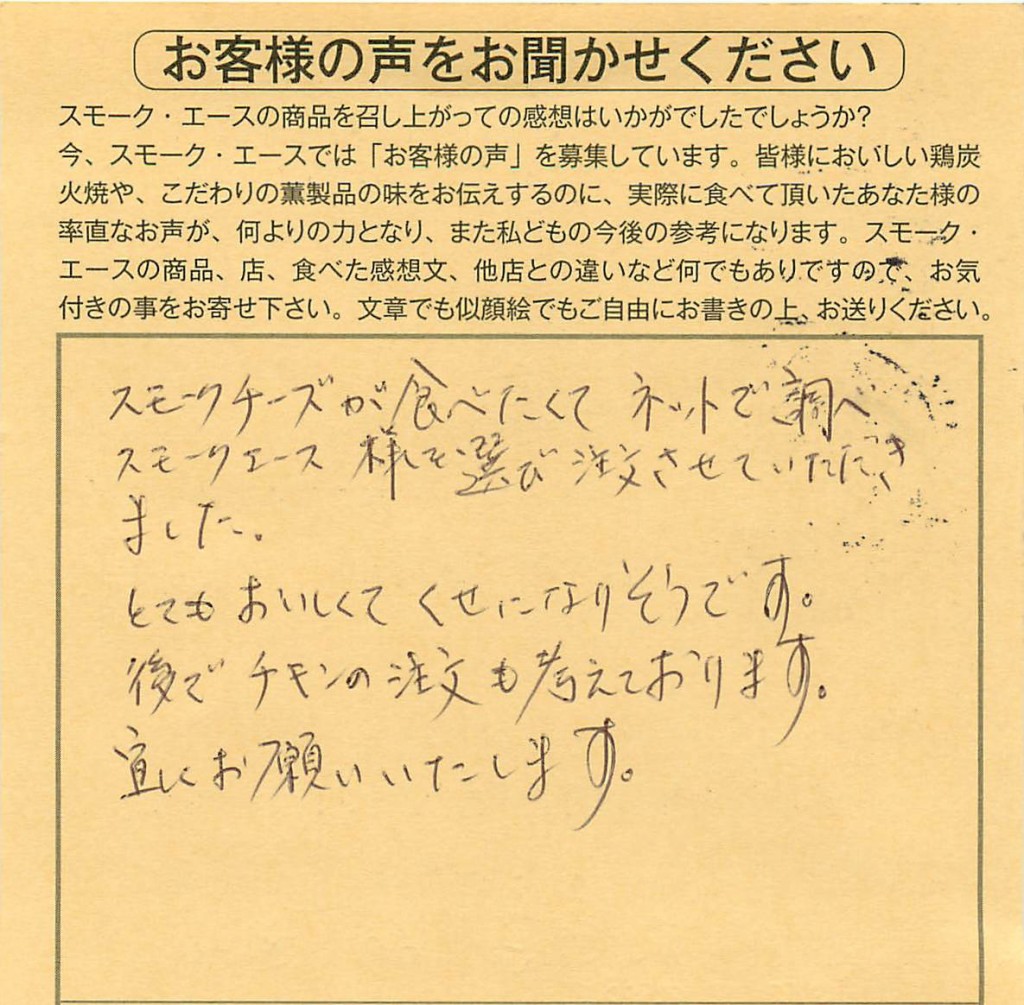 お客様の声をお聞かせください
スモーク・エースの商品を召し上がっての感想はいかがでしたでしょうか?
今、スモーク・エースでは「お客様の声」を募集しています。皆様においしい鶏炭
火焼や、こだわりの薫製品の味をお伝えするのに、実際に食べて頂いたあなた様の
率直なお声が、何よりの力となり、また私どもの今後の参考になります。スモーク・
エースの商品、店、食べた感想文、他店との違いなど何でもありですので、お気
付きの事をお寄せ下さい。文章でも似顔絵でもご自由にお書きの上、お送りください。
スモークチーズが食べたくて ネットで調べ
スモークエース 様を選び 注文させていただき
ました。
とてもおいしくて くせになりそうです。
後で チキンの注文も考えております。
宜しくお願いいたします。